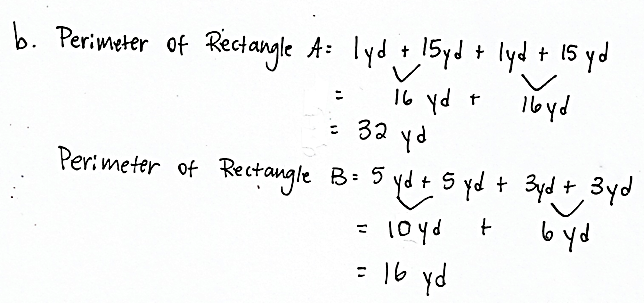 b. Perimeter of Rectangle A: 1yd + 15yd + 1yd + 15 yd
= 16 yd + 16yd
= 32 yd
Perimeter of Rectangle B= 5 yd + 5 yd + 3yd + 3yd
= 10yd + 6 yd
= 16 yd